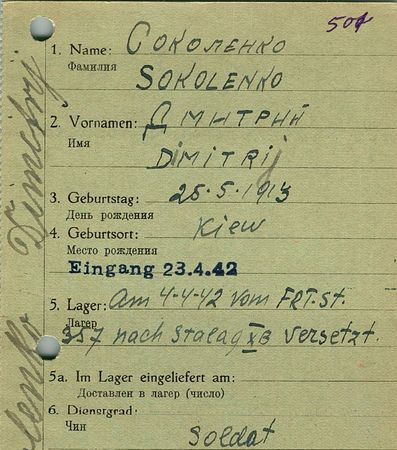 501
1. Name: Соколенко
Фамилия
SOKOLENKO
2. Vornamen: Дмитрий
Имя
DiMITRij
3. Geburtstag: 25.5.1913
День рождения
4. Geburtsort: Kiew
Место рождения
Eingang 23.4.42
5. Lager: Am 4-4-42 vom FRT-St.
Лагерь
357 nach Stalag XB versetzt.
5a. Im Lager eingeliefert am:
Доставлен в лагерь (число)
6. Dienstgrad:
Чин
Soldat
lenko Dimitry